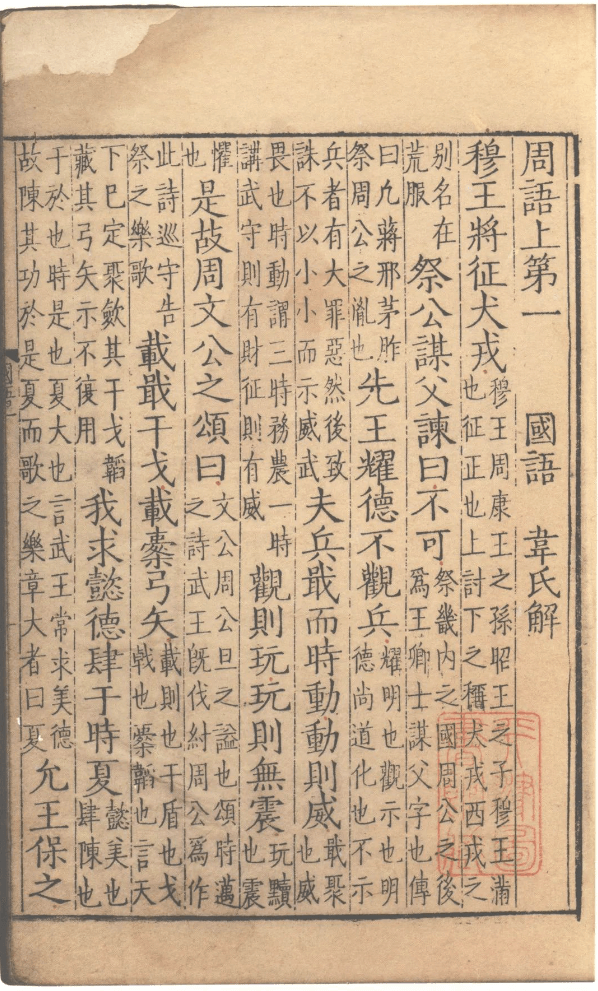 周語上第一　國語　韋氏解
穆王將征犬戎 穆王周康王之孫昭王之子穆王滿也征正也上討下之稱犬戎西戎之
別名在荒服 祭公謀父諫曰不可 祭畿内之國周公之後爲王卿士謀父字也傳
曰凡蔣邢茅胙祭周公之胤也 先王耀德不觀兵 耀明也觀示也明德尚道化也不示
兵者有大罪惡然後致誅不以小小而示威武 夫兵戢而時動動則威 戢聚也威
畏也時動謂三時務農一時講武守則有財征則有威 觀則玩玩則無震 玩黷也震
懼也 是故周文公之頌曰 文公周公旦之謚也頌時邁之詩武王旣伐紂周公爲作
此詩巡守告祭之樂歌 載戢干戈載櫜弓矢 載則也干盾也戈戟也櫜韜也言天
下巳定聚斂其干戈韜藏其弓矢示不復用 我求懿德肆于時夏 懿美也肆陳也
于於也時是也夏大也言武王常求美德故陳其功於是夏而歌之樂章大者曰夏 允王保之